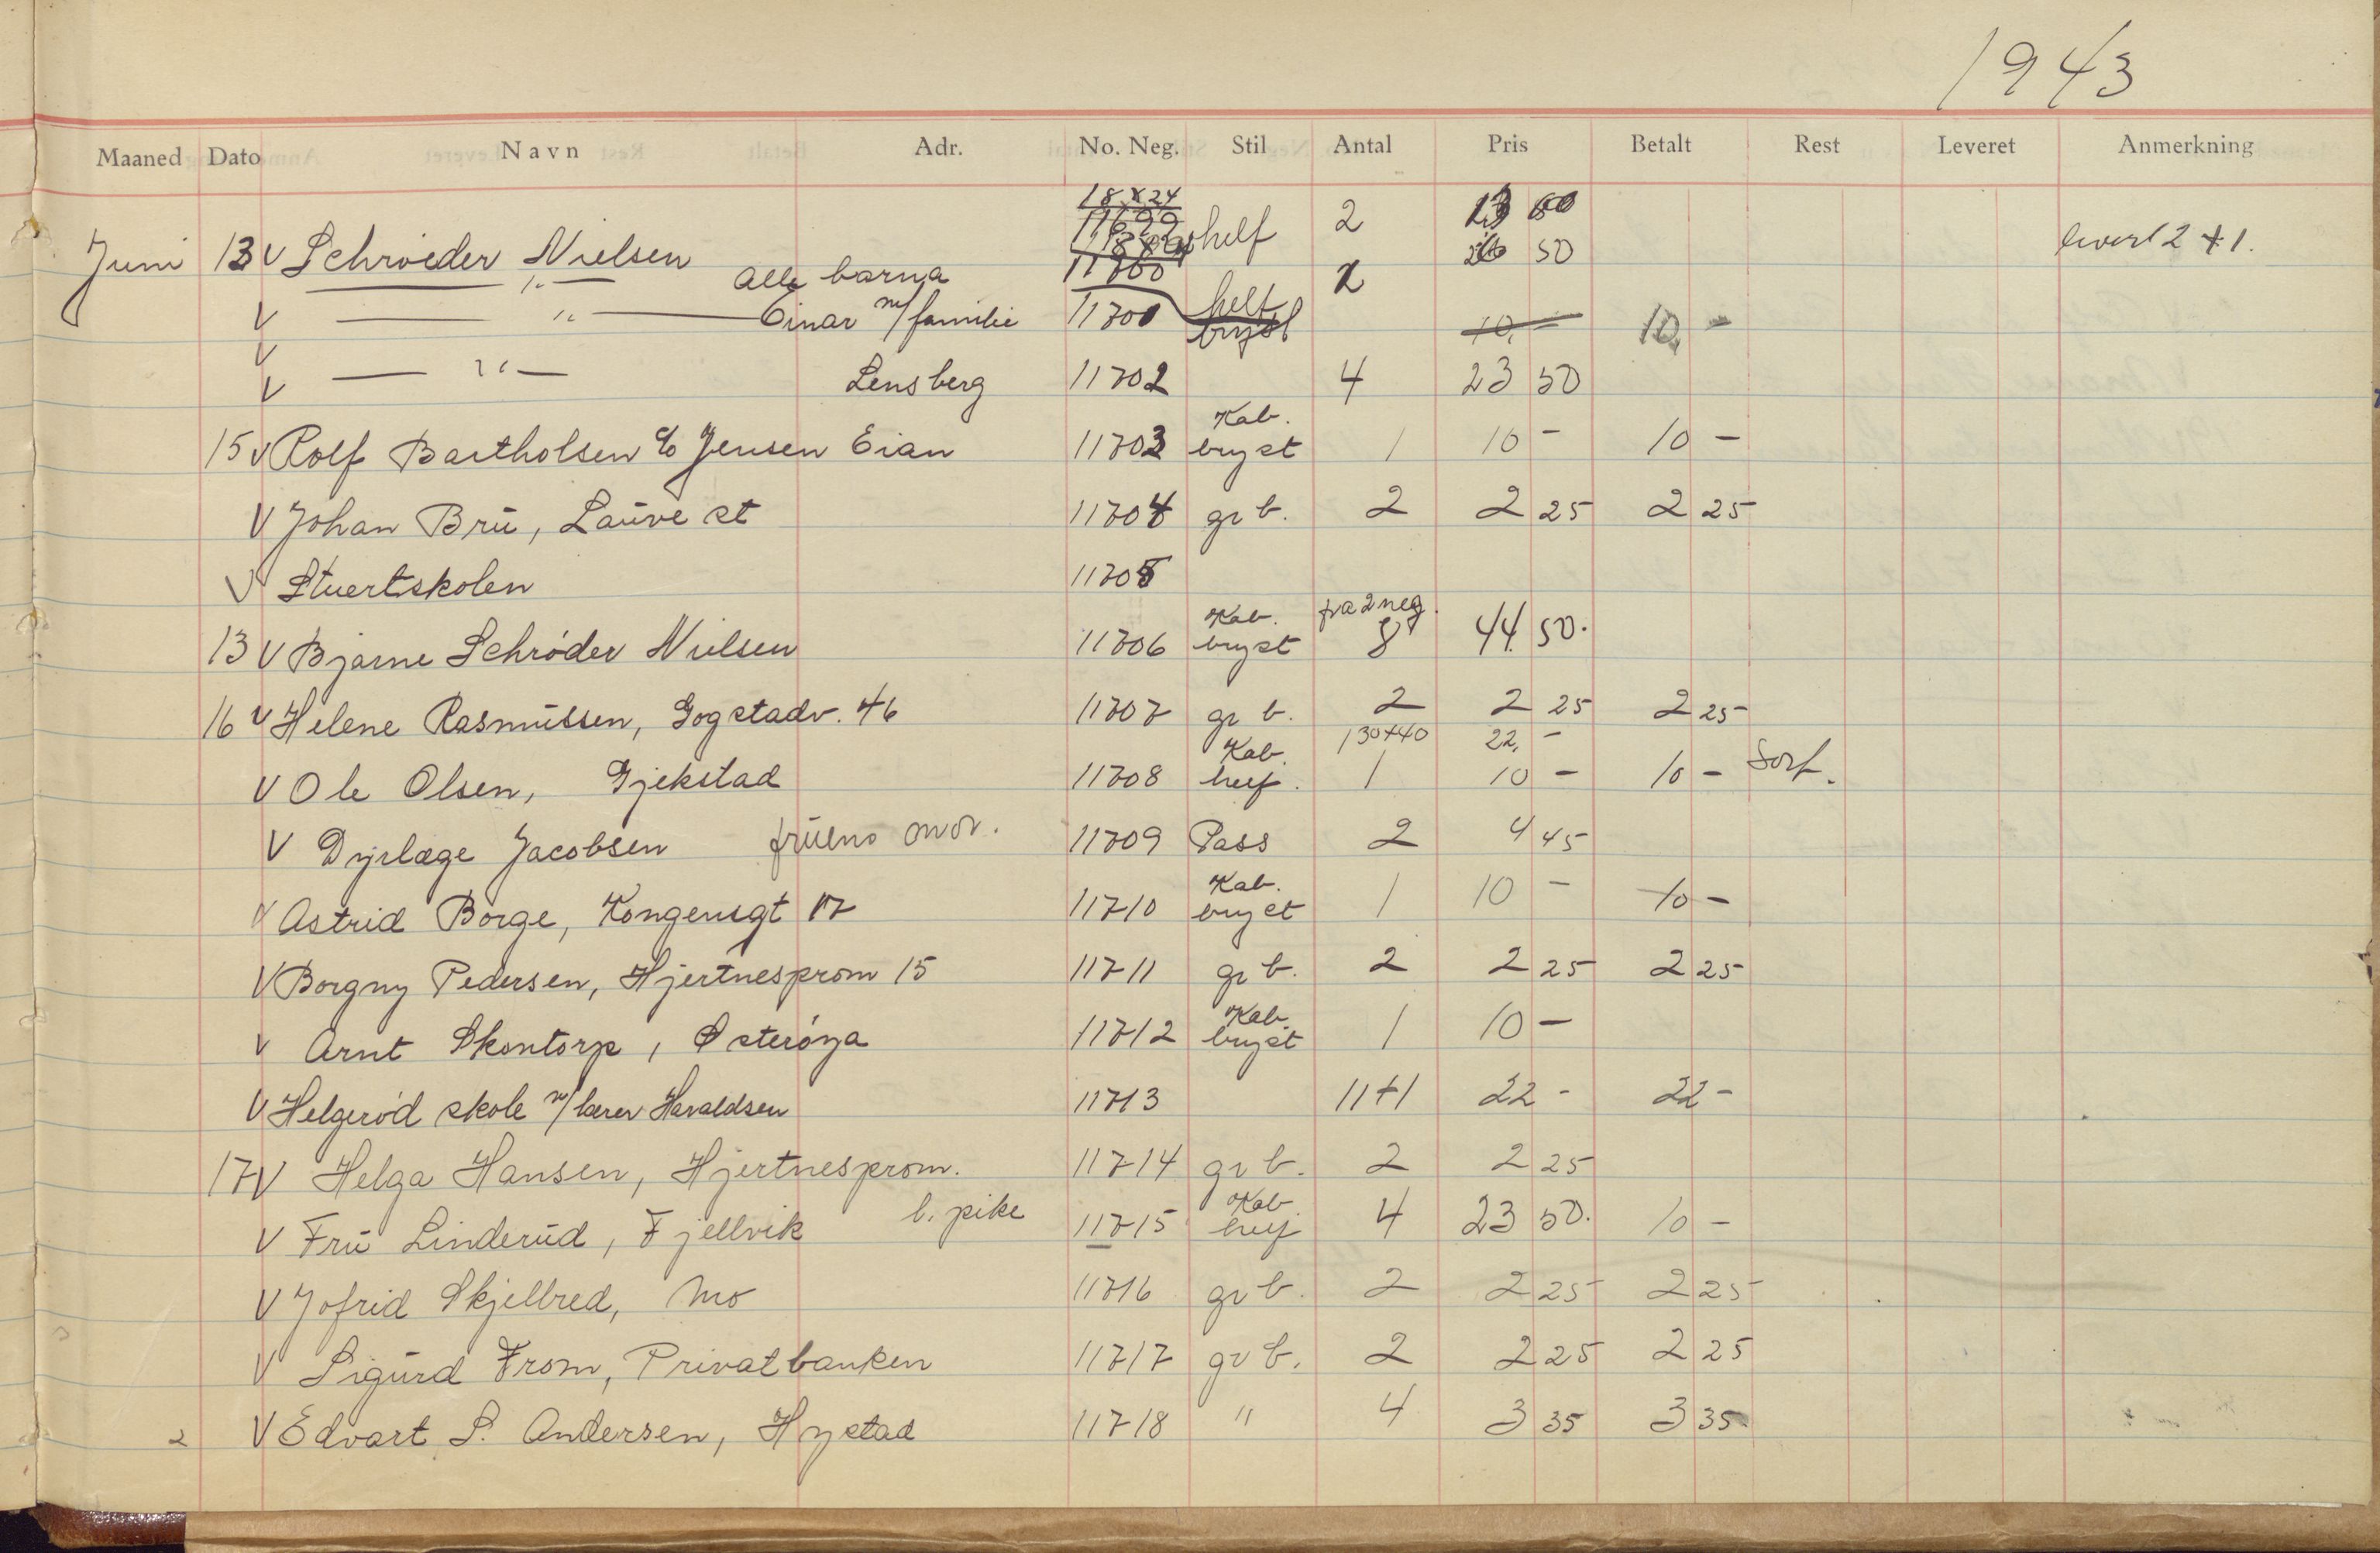 1943
Maaned Dato Navn Adr. No. Neg. Stil Antal Pris Betalt Rest Leveret Anmerkning
18x24
Juni 13 V Schrøder Nielsen 11699 helf 2 13 60 levert 2 + 1.
18x24 26 50
— " — alle barna 11700 2
V — " — Einar m/familie 11701 helf 10,- 10,-
bryst
V
V — " — Lensberg 11702 4 23 50
Kab.
15 V Rolf Bartholsen c/o Jensen Eian 11703 bryst 1 10 - 10 -
V Johan Brŭ, Laŭve st 11704 gr b. 2 2 25 2 25
V Stuertskolen 11705
Kab. fra 2 neg.
13 V Bjarne Schrøder Nielsen 11706 bryst 8 44. 50.
16 V Helene Rasmŭssen, Gogstadv. 46 11707 gr b. 2 2 25 2 25
Kab. 1 30x40 22,-
V Ole Olsen, Gjekstad 11708 helf. 1 10 - 10 - Sort.
V Dyrlæge Jacobsen frŭens mor. 11709 Pass 2 4 45
Kab.
V Astrid Borge, Kongensgt 17 11710 bryst 1 10 - 10 -
V Borgny Pedersen, Hjertnesprom 15 11711 gr b. 2 2 25 2 25
Kab.
V Arnt Skontorp, Østerøya 11712 bryst 1 10 -
V Helgerød skole m/lærer Haraldsen 11713 11+1 22 - 22 -
17 V Helga Hansen, Hjertnesprom. 11714 gr b. 2 2 25
Kab.
V Frŭ Linderŭd, Fjellvik l. pike 11715 helf 4 23 50. 10 -
V Jofrid Skjelbred, Mo 11716 gr b. 2 2 25 2 25
V Sigŭrd From, Privatbanken 11717 gr b. 2 2 25 2 25
2 V Edvart S. Andersen, Hystad 11718 " 4 3 35 3 35